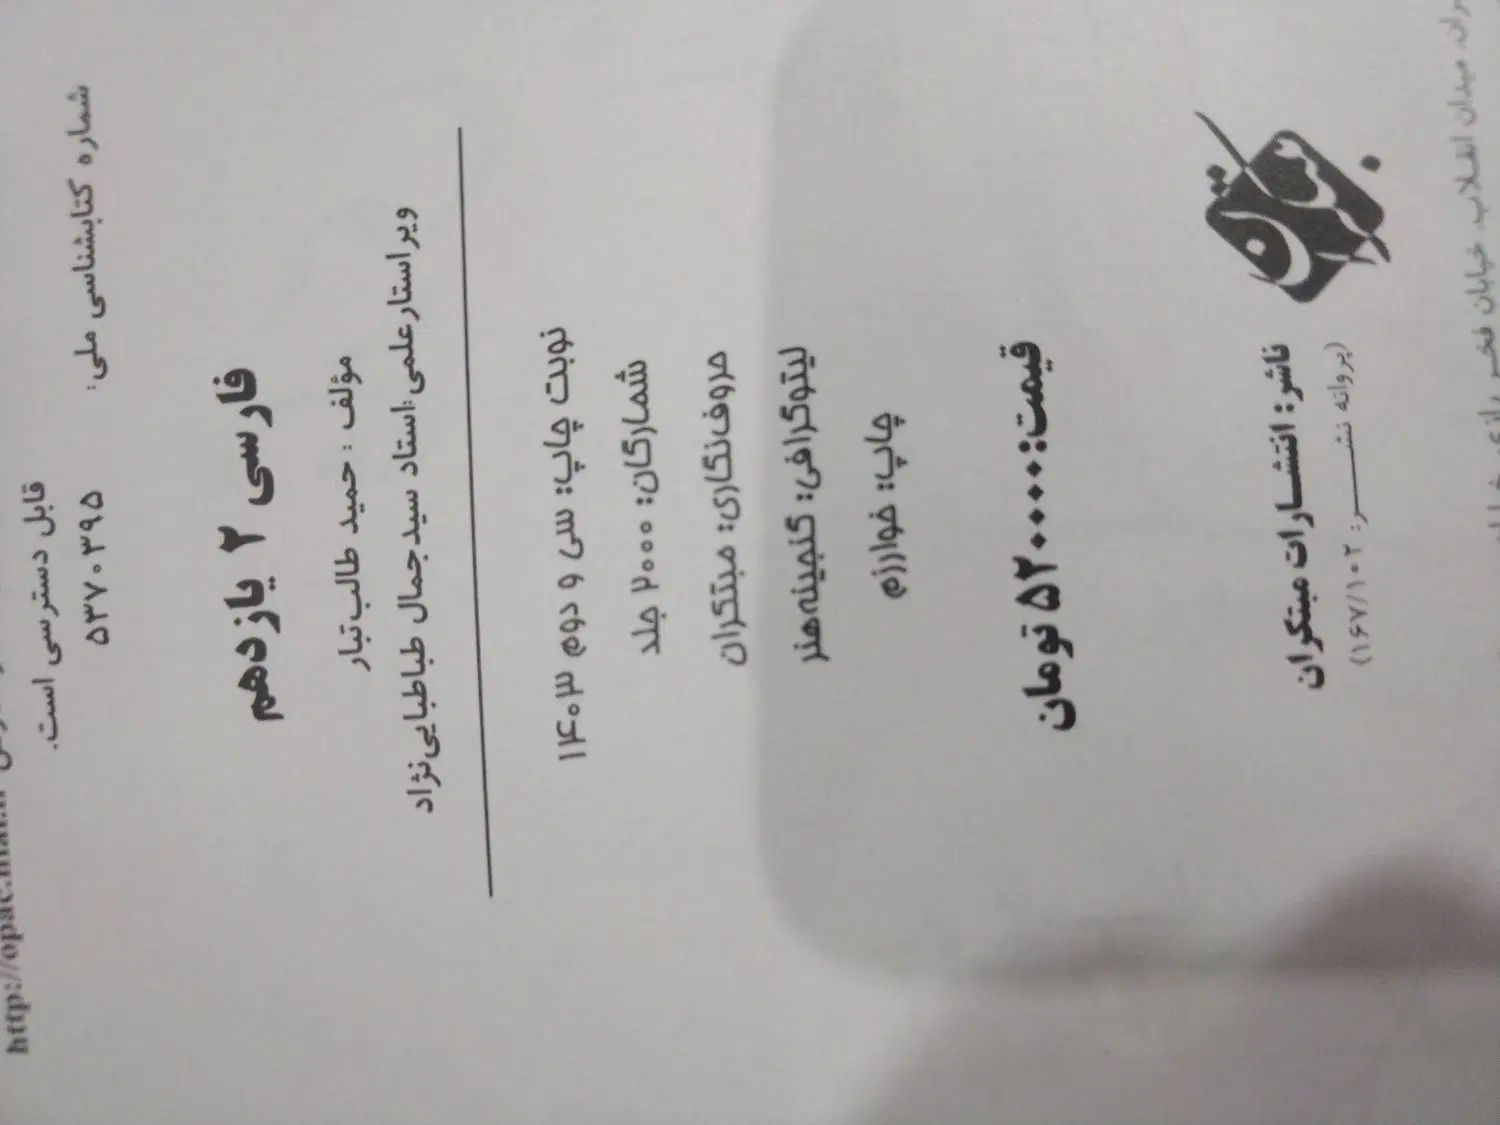 http://opac.nlai.ir
قابل دسترسی است.
شماره کتابشناسی ملی: ۵۳۷۰۳۹۵
فارسی ۲ یازدهم
مؤلف: حمید طالب‌تبار
ویراستار علمی: استاد سیدجمال طباطبایی‌نژاد
نوبت چاپ: سی و دوم ۱۴۰۳
شمارگان: ۲۰۰۰ جلد
حروف‌نگاری: مبتکران
لیتوگرافی: گنجینه‌هنر
چاپ: خوارزم
قیمت: ۵۲۰۰۰۰ تومان
مبتکران
ناشر: انتشارات مبتکران
(پروانه نشر: ۱۶۷/۱۰۲)
میدان انقلاب، خیابان فخر رازی،